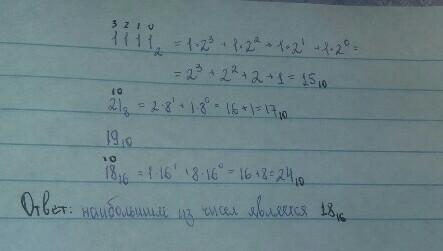 3 2 1 0
1111₂ = 1·2³ + 1·2² + 1·2¹ + 1·2⁰ =
= 2³ + 2² + 2 + 1 = 15₁₀
10
21₈ = 2·8¹ + 1·8⁰ = 16 + 1 = 17₁₀
19₁₀
10
18₁₆ = 1·16¹ + 8·16⁰ = 16 + 8 = 24₁₀
Ответ: наибольшим из чисел является 18₁₆